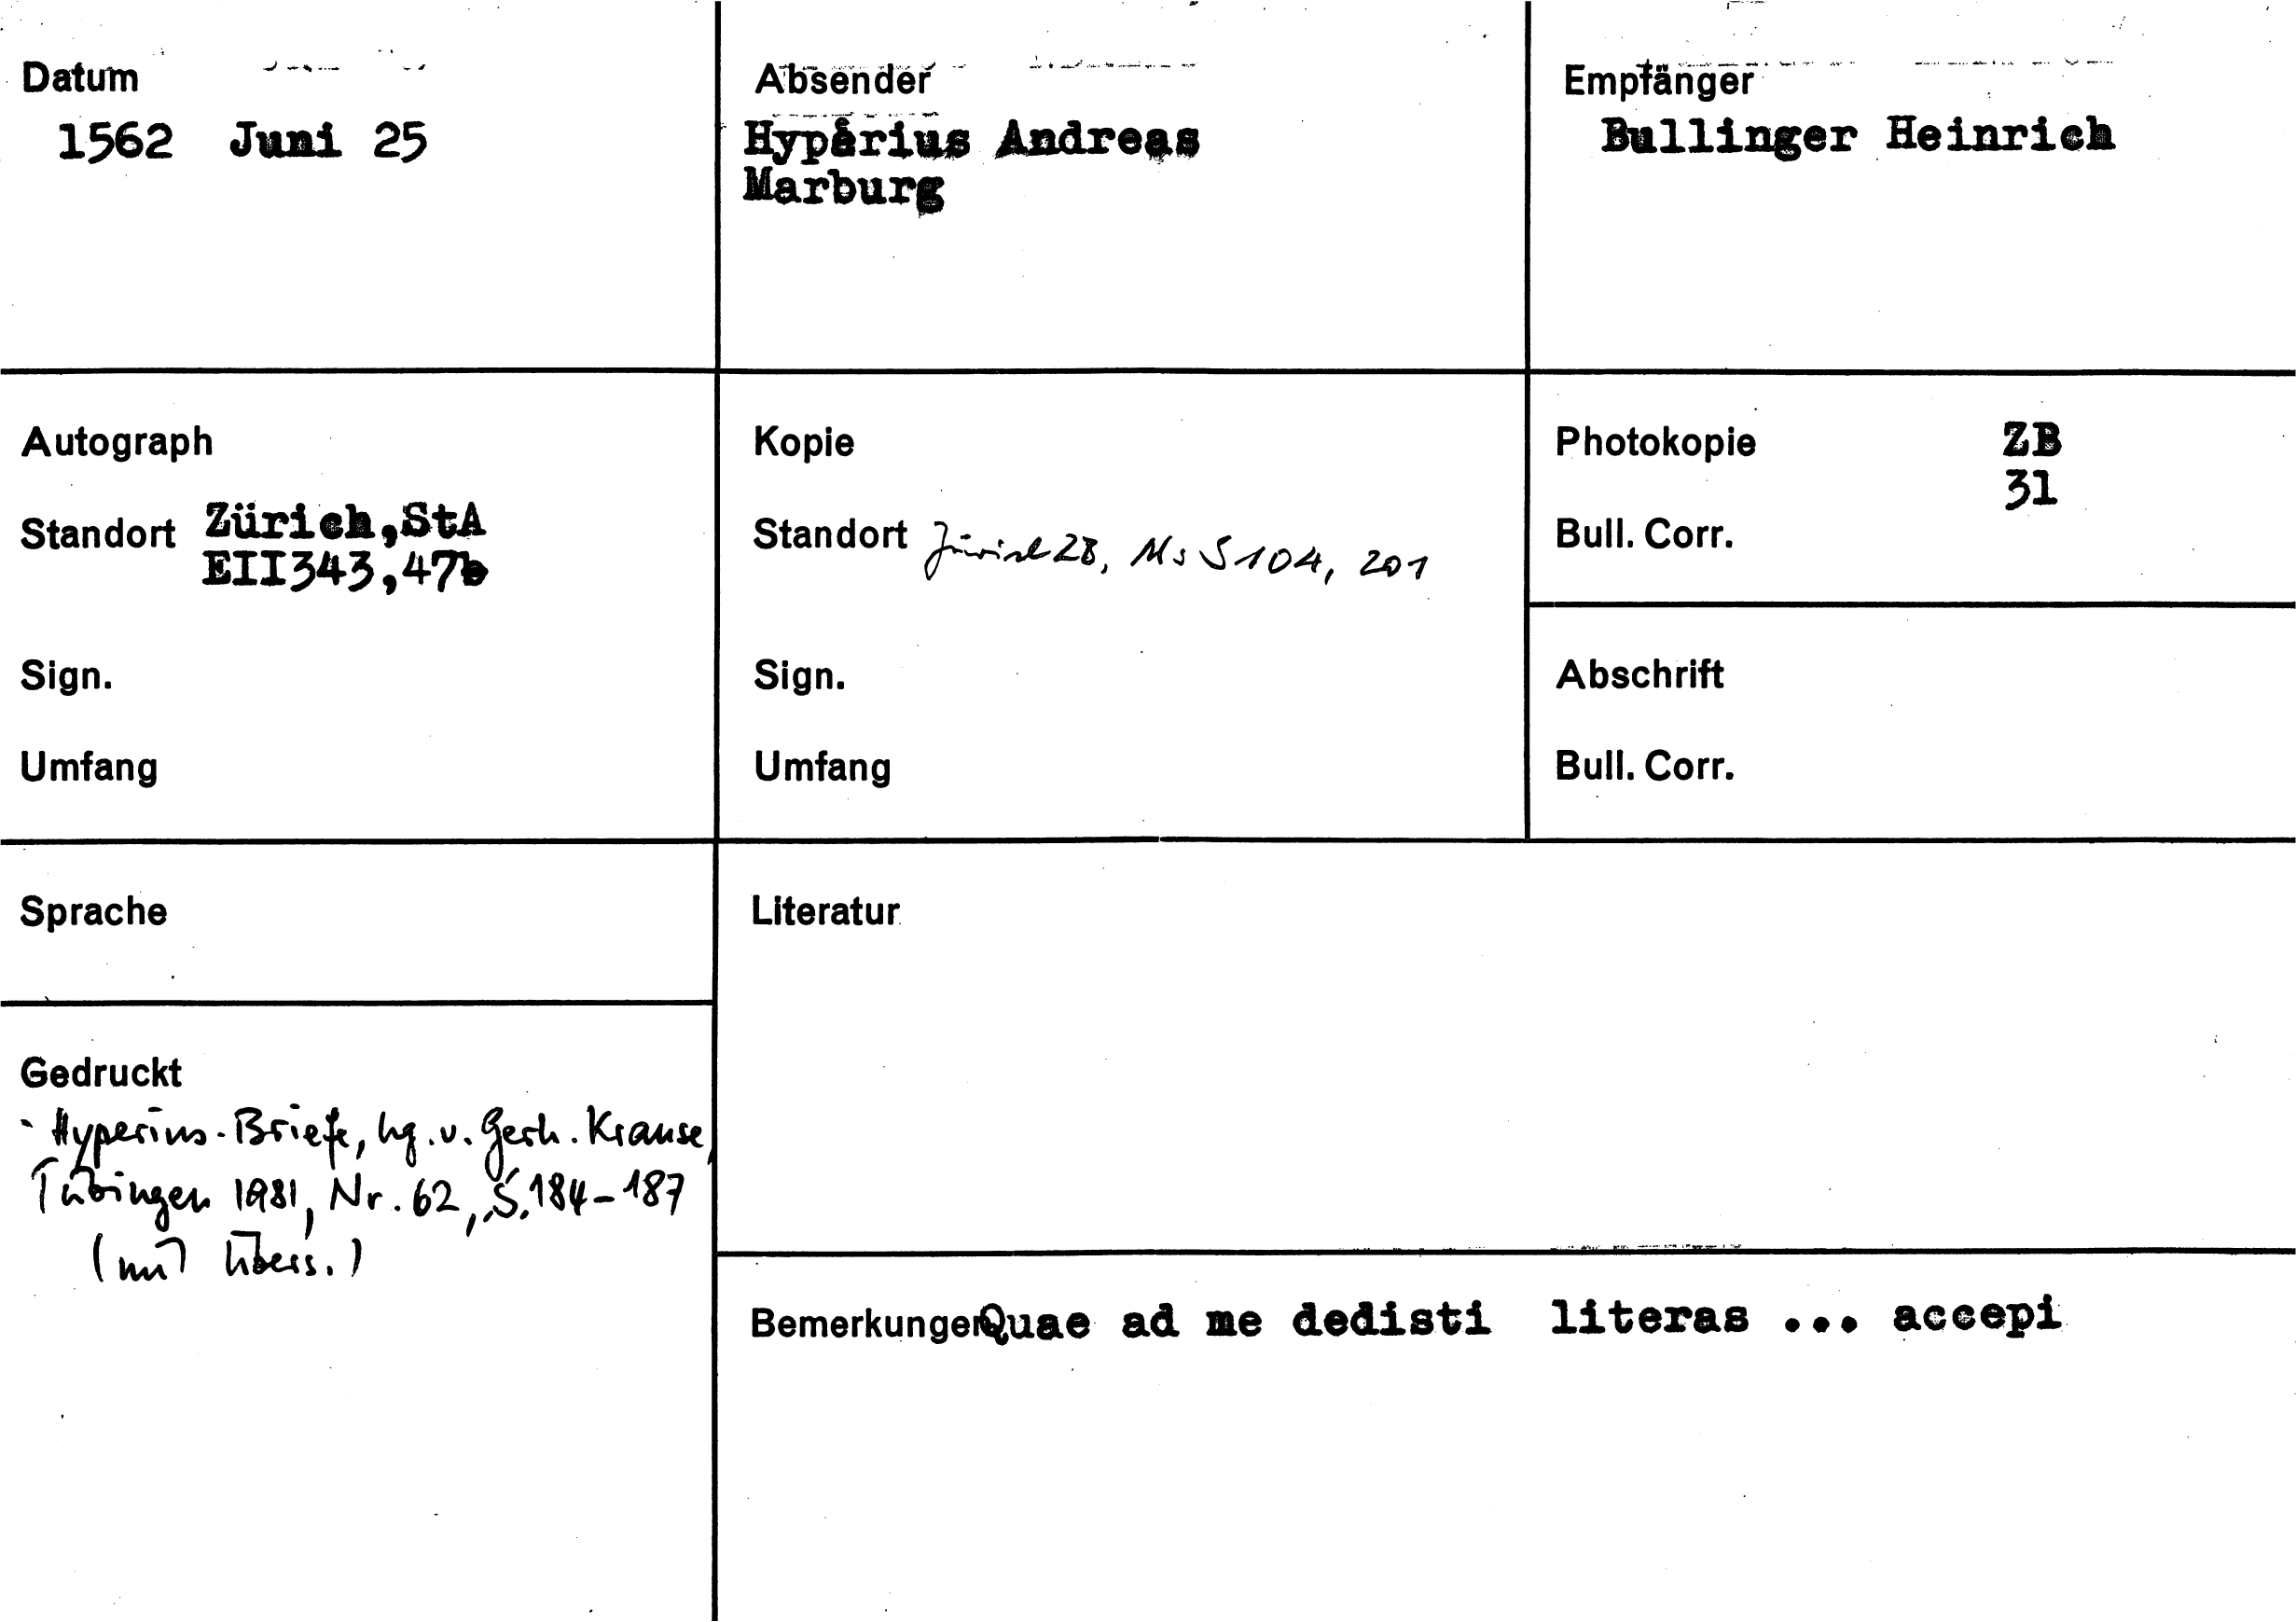 Datum
1562 Juni 25
Absender
Hyperius Andreas
Marburg
Empfänger
Bullinger Heinrich
Autograph
Standort Zürich,StA
EII343,47b
Sign.
Umfang
Kopie
Standort Zürich ZB, Ms S 104, 201
Sign.
Umfang
Photokopie ZB
31
Bull. Corr.
Abschrift
Bull. Corr.
Sprache
Literatur
Gedruckt
- Hyperius-Briefe, hg. v. Gerh. Krause,
Tübingen 1981, Nr. 62, S. 184-187
(mit Übers.)
Bemerkungen Quae ad me dedisti literas ... accepi